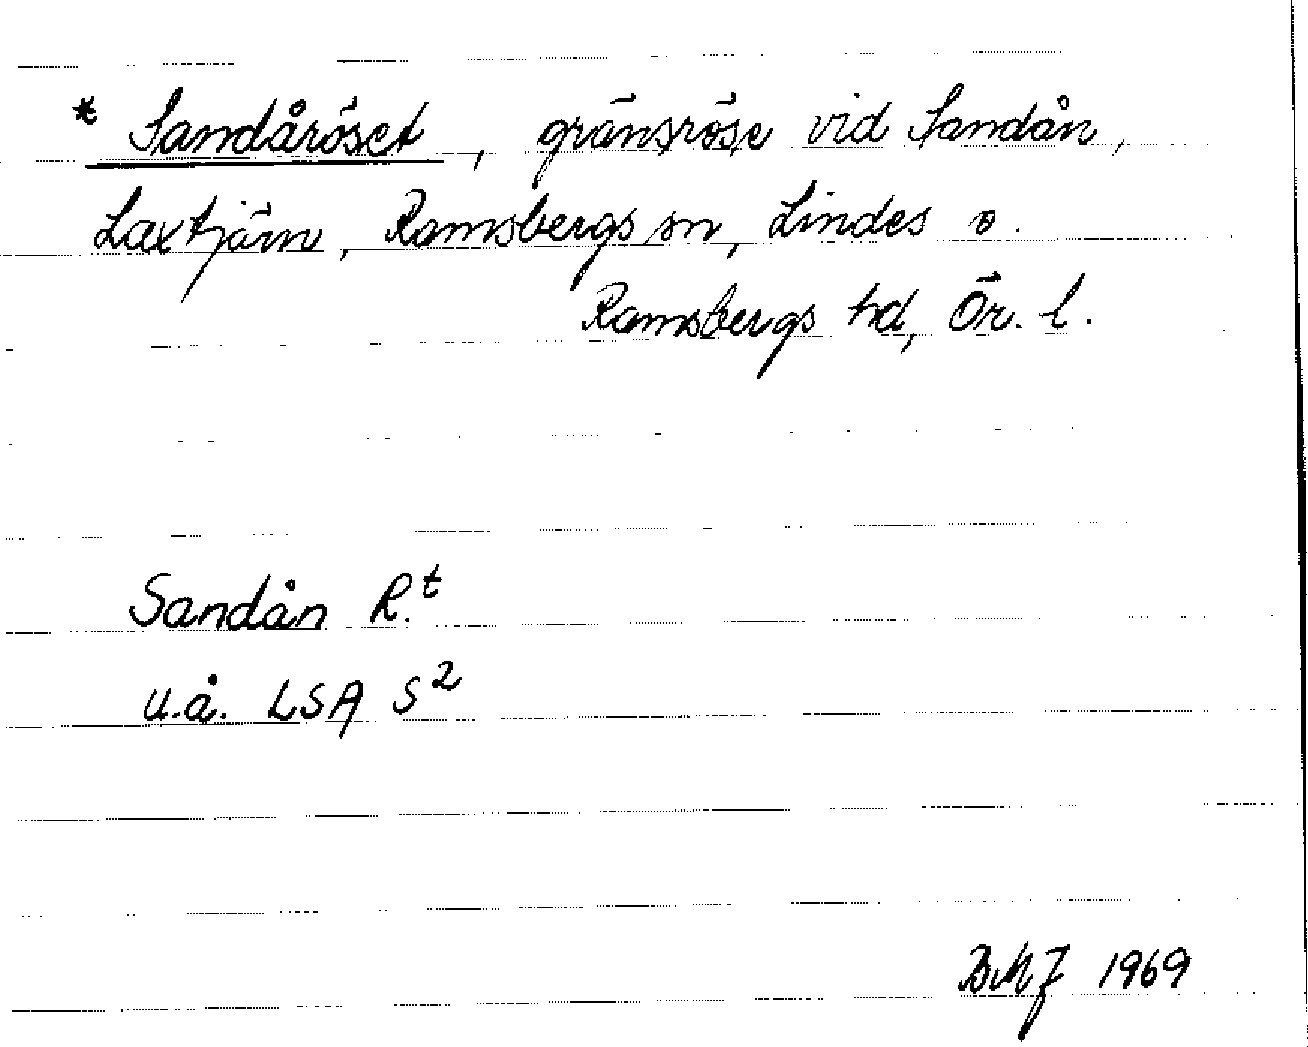 * Sandåröset, gränsröse vid Sandån,
Laxtjärn, Ramsbergs sn, Lindes o.
Ramsbergs hd, Ör. l.
Sandån R.t
u.å. LSA S2
BMJ 1969